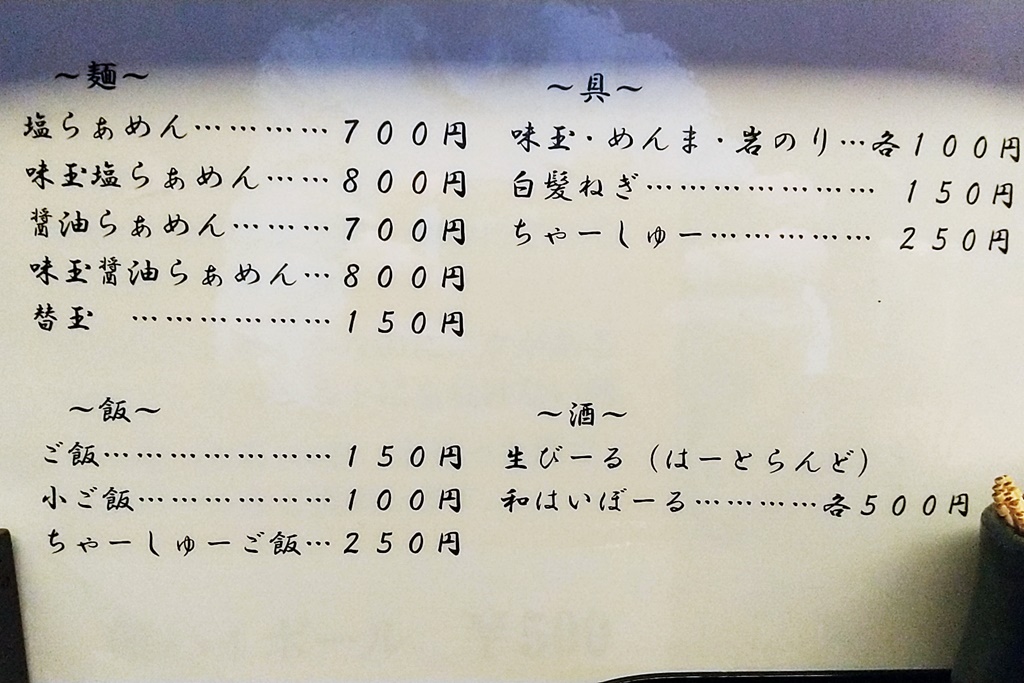 ～麺～
塩らぁめん…………７００円
味玉塩らぁめん……８００円
醤油らぁめん………７００円
味玉醤油らぁめん…８００円
替玉　………………１５０円
～飯～
ご飯…………………１５０円
小ご飯………………１００円
ちゃーしゅーご飯…２５０円
～具～
味玉・めんま・岩のり…各１００円
白髪ねぎ…………………１５０円
ちゃーしゅー……………２５０円
～酒～
生びーる（はーとらんど）
和はいぼーる…………各５００円